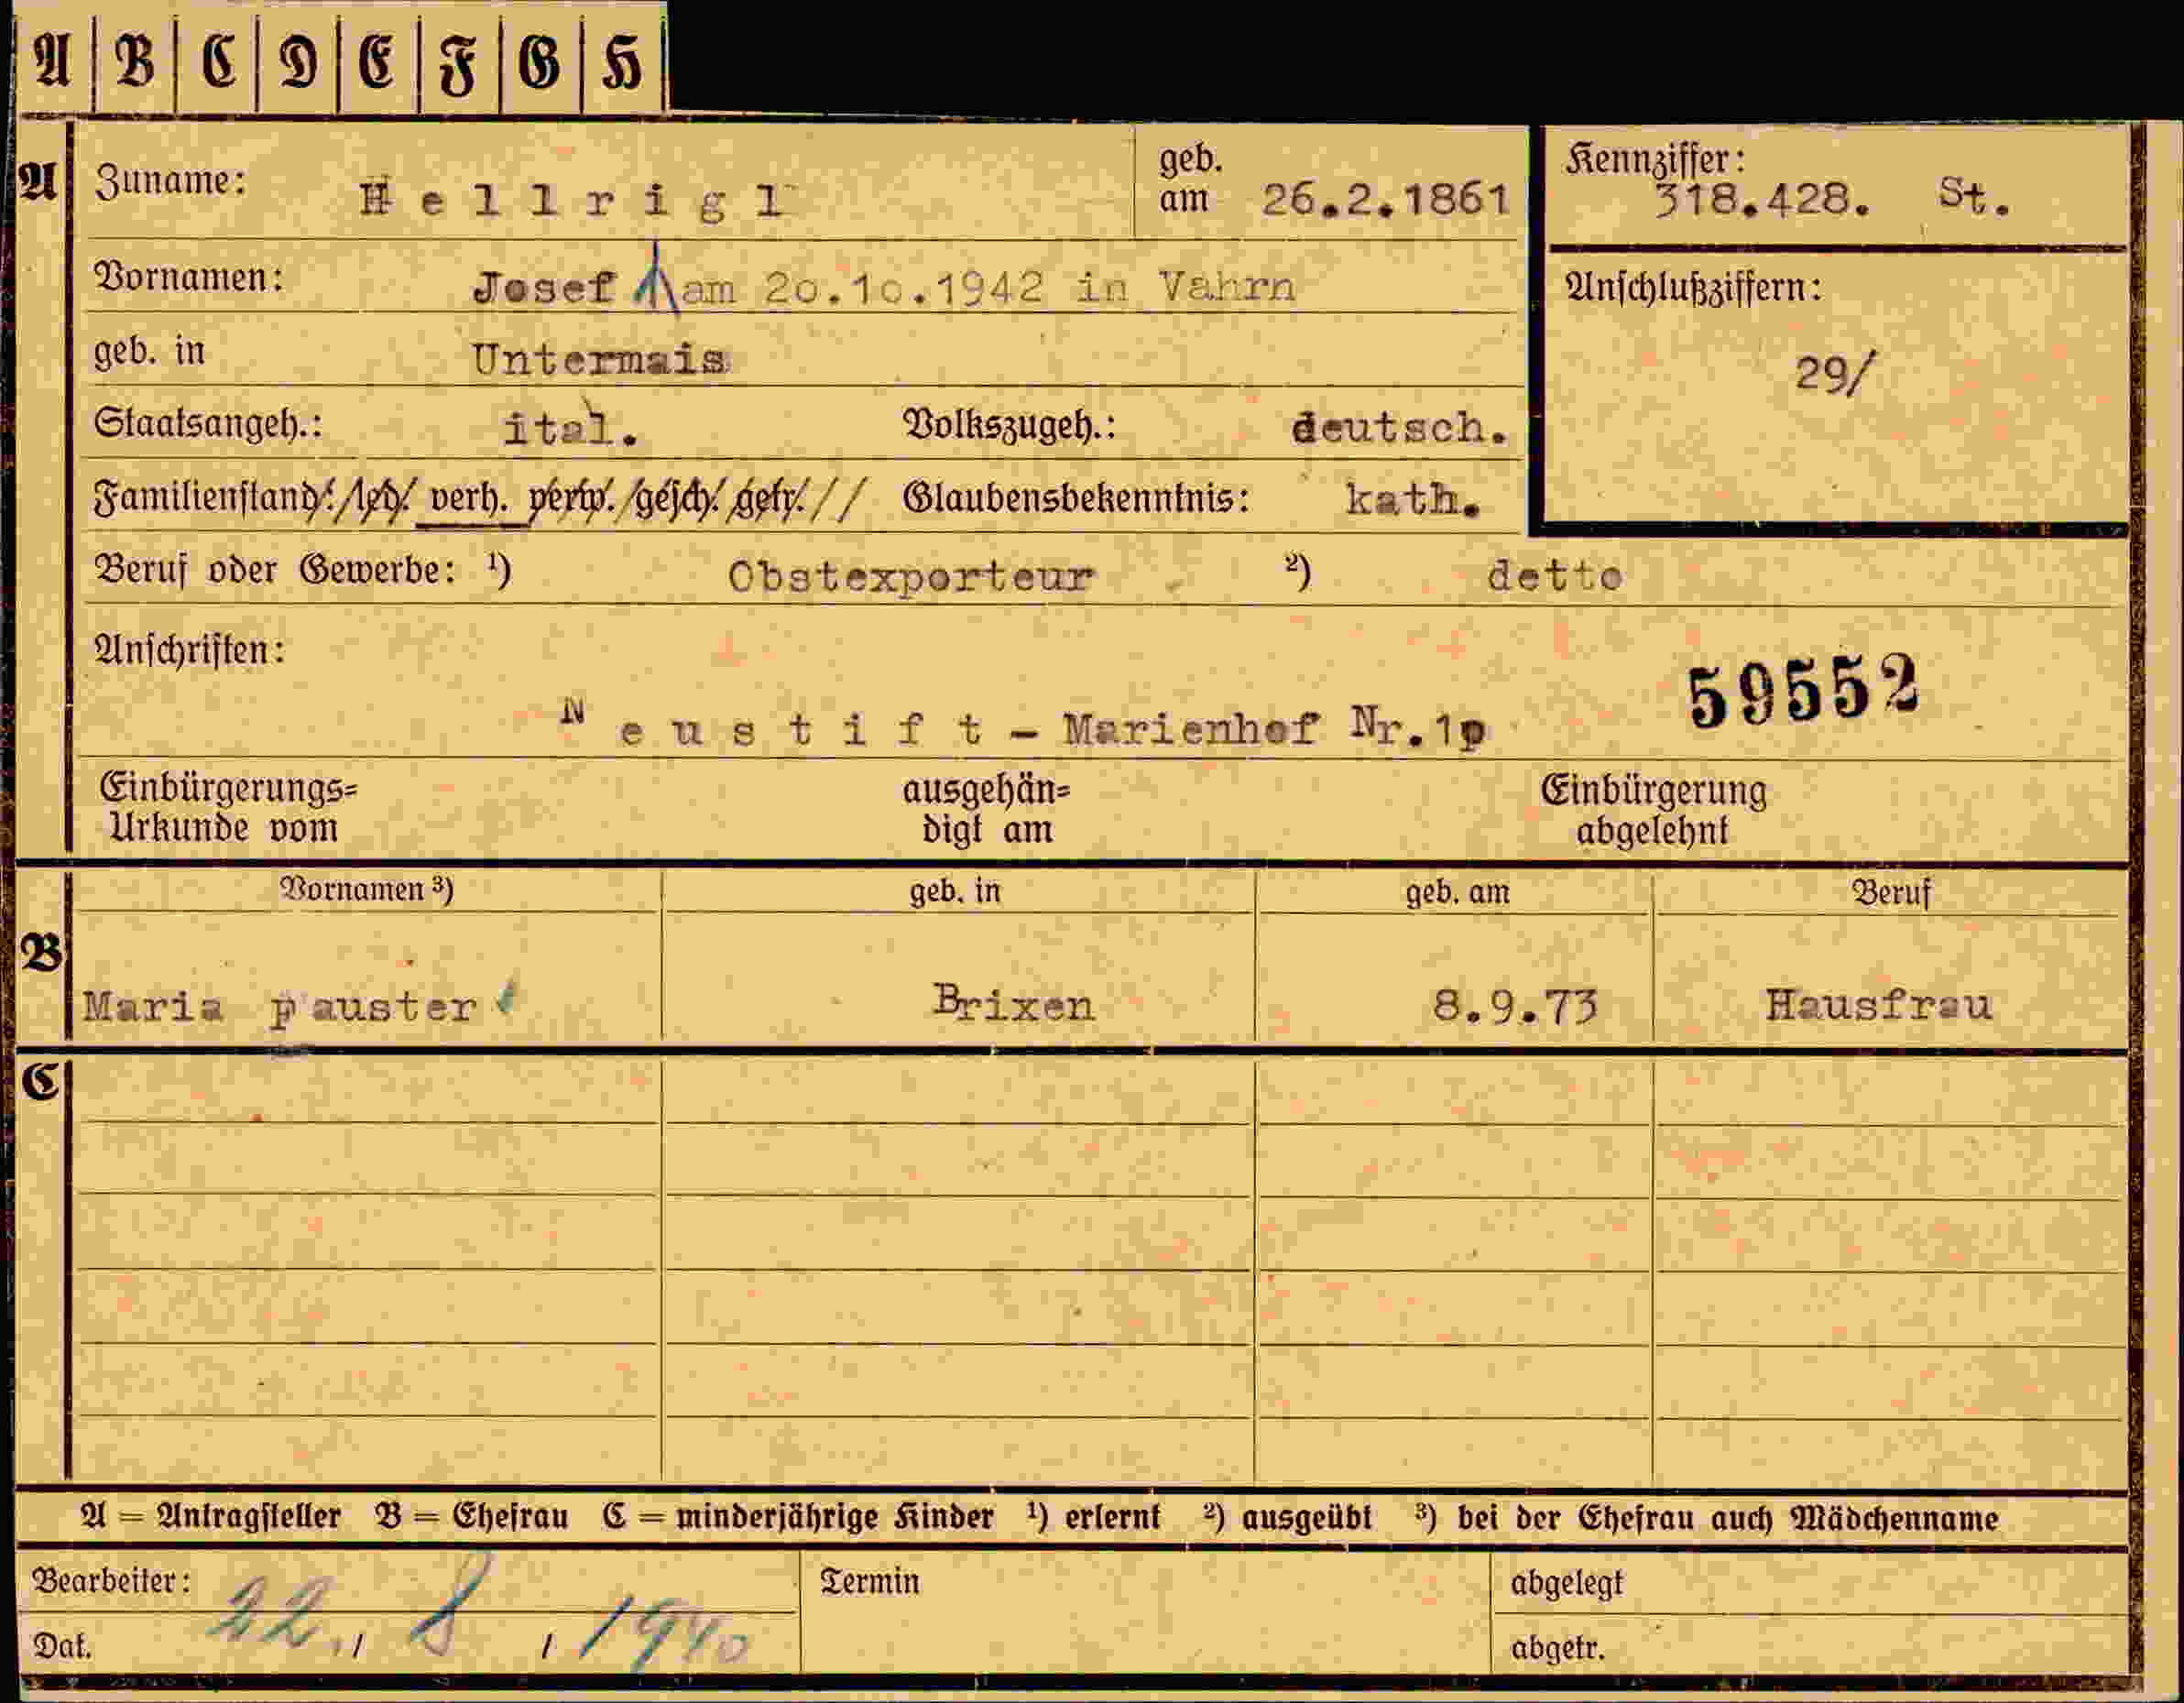 A B C D E F G H
A Zuname: Hellrigl geb. am 26.2.1861
Kennziffer: 318.428. St.
Vornamen: Josef am 20.10.1942 in Vahrn
Anschlußziffern:
29/
geb. in Untermais
Staatsangeh.: ital. Volkszugeh.: deutsch.
Familienstand: led. verh. verw. gesch. getr. Glaubensbekenntnis: kath.
Beruf oder Gewerbe: ¹) Obstexporteur ²) detto
Anschriften:
59552
Neustift - Marienhof Nr.1p
Einbürgerungs= ausgehän= Einbürgerung
Urkunde vom digt am abgelehnt
Vornamen ³) geb. in geb. am Beruf
B
Maria pauster Brixen 8.9.73 Hausfrau
C
A = Antragsteller B = Ehefrau C = minderjährige Kinder ¹) erlernt ²) ausgeübt ³) bei der Ehefrau auch Mädchenname
Bearbeiter: Termin abgelegt
Dat. 22. 8 1940 abgetr.